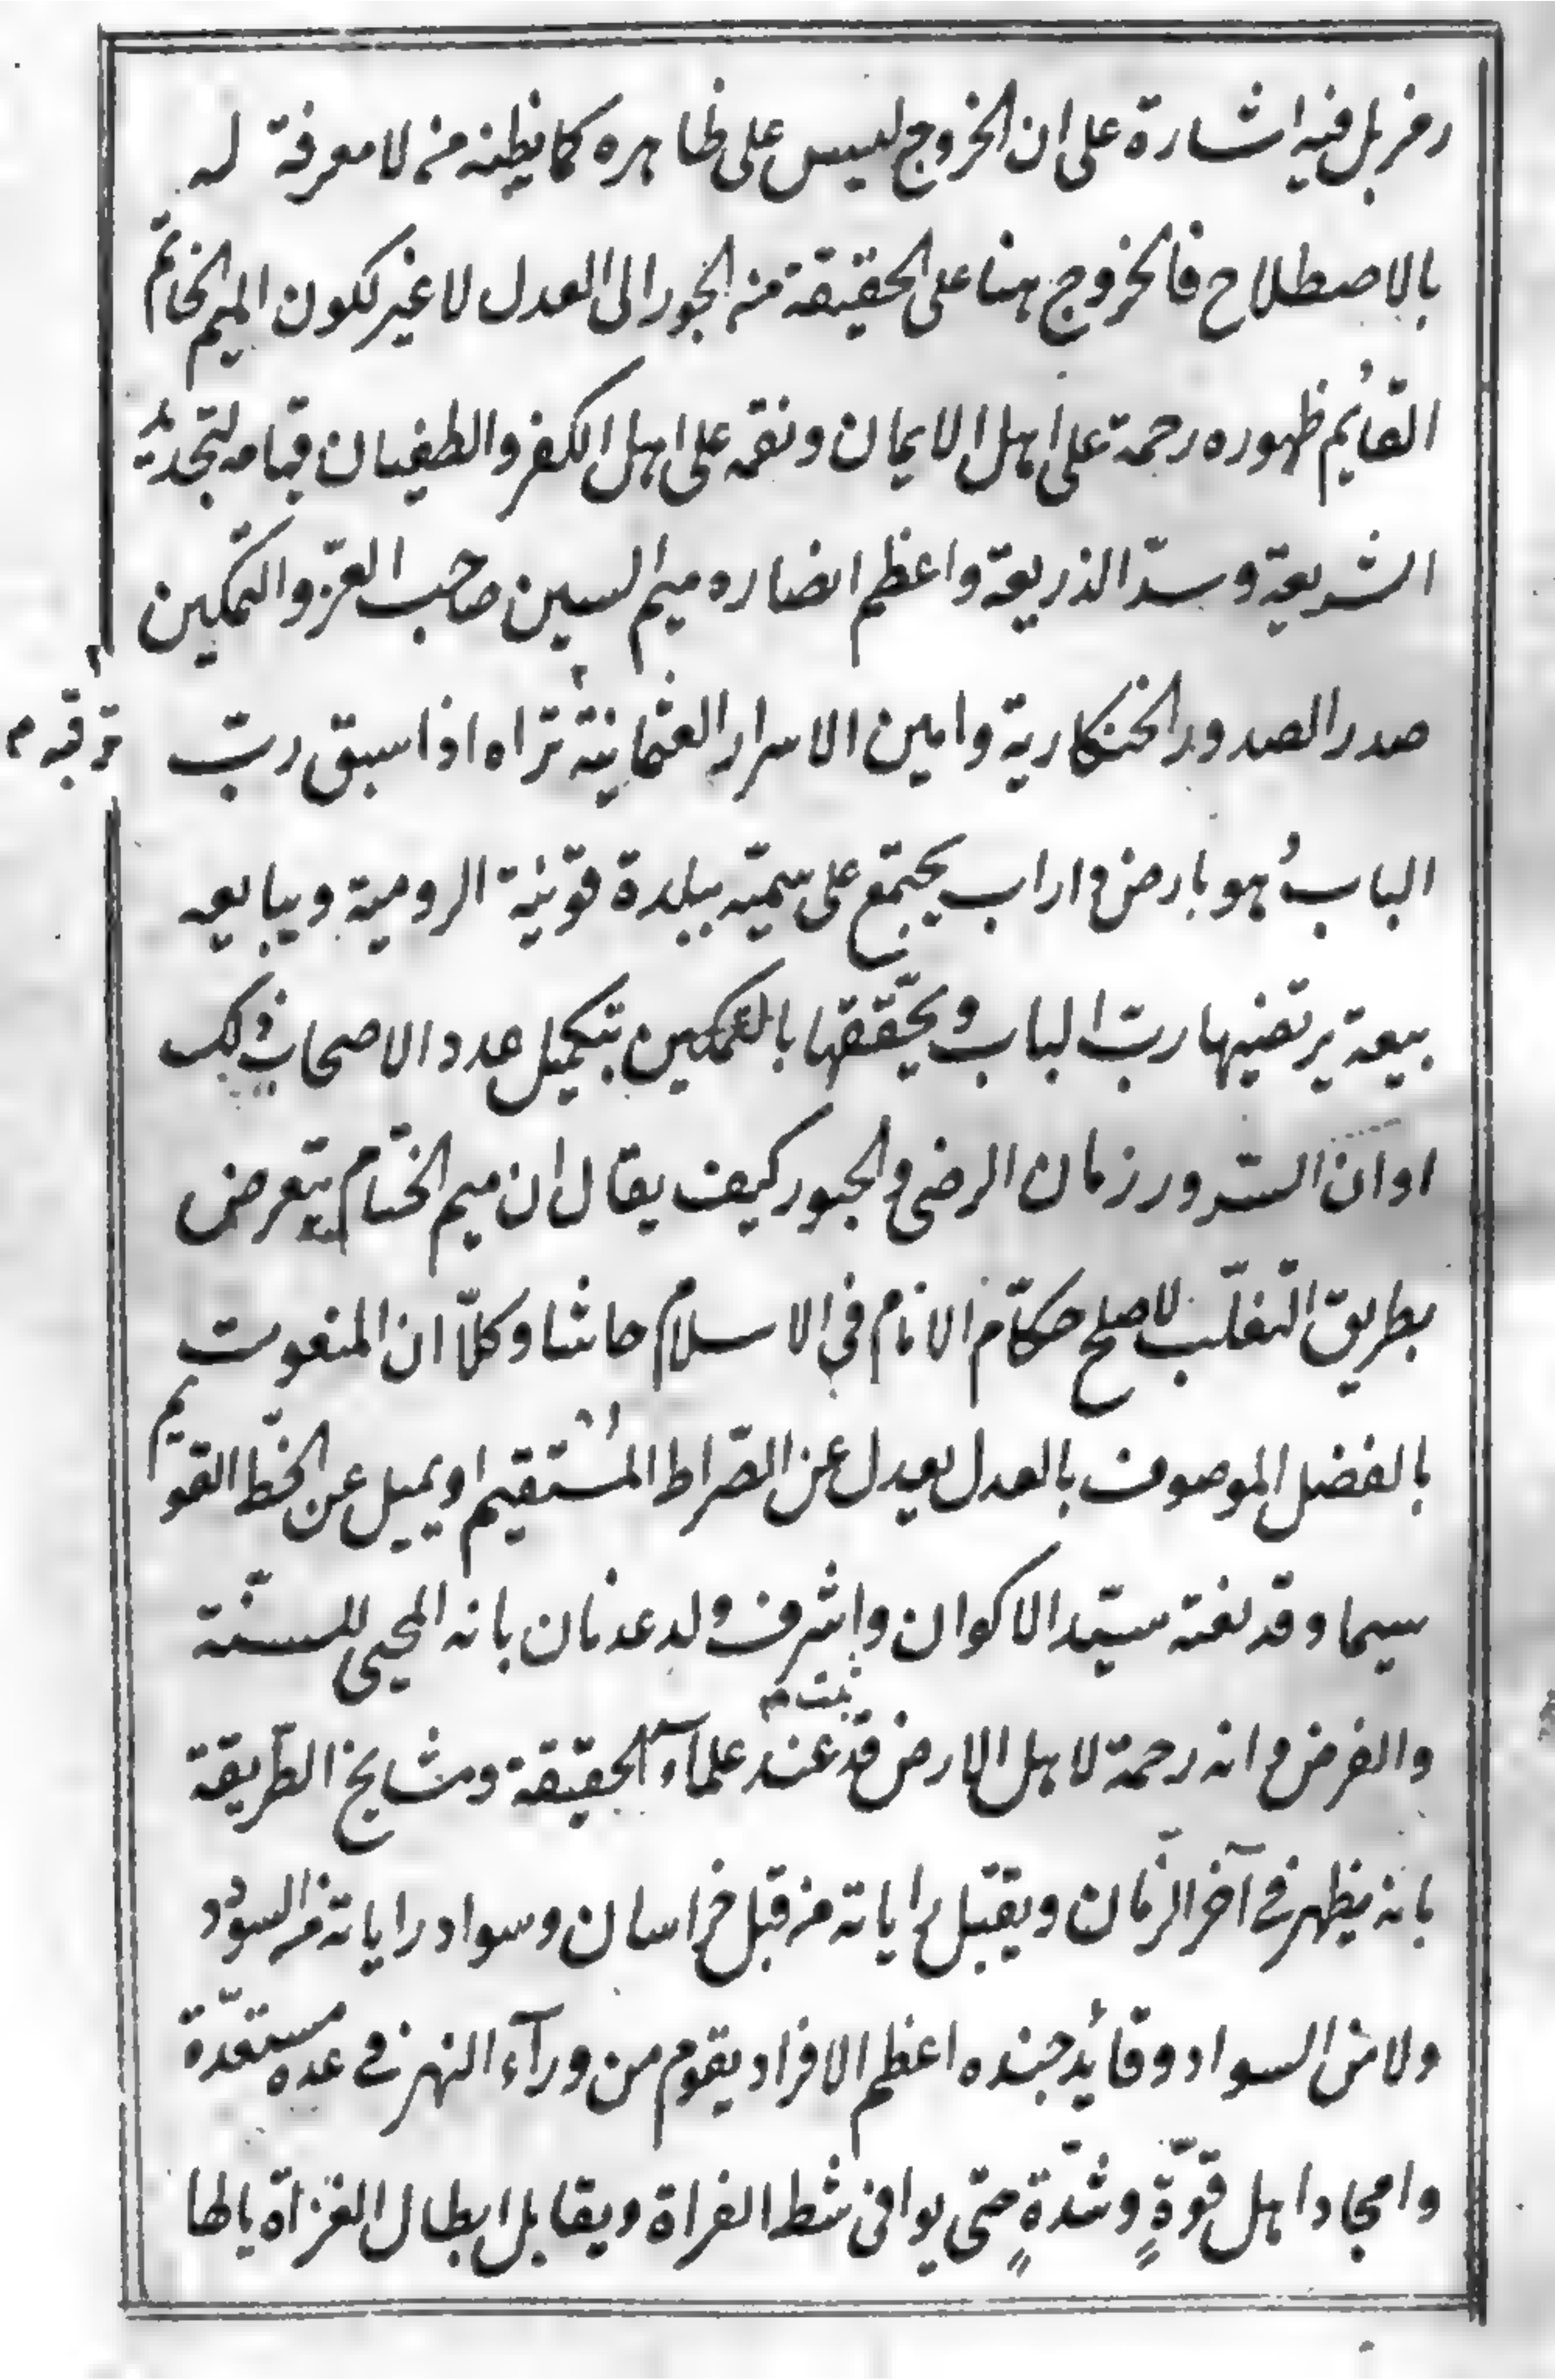 رمز بل فيه اشارة على ان الخروج ليس على ظاهره كما يظنه من لا معرفة له
بالاصطلاح فالخروج هنا على الحقيقة من الجور الى العدل لا غير لكون الميم الخاتم
القائم ظهوره رحمة على اهل الايمان ونقمه على اهل الكفر والطغيان قيامه لتجديد
الشريعة وسدّ الذريعة واعظم انصاره ميم السين صاحب العزّ والتمكين
صدر الصدور الخنكارية وامين الاسرار العثمانية تراه اذا سبق ربّ
ترقبه م
الباب هو بارض اراب يجتمع على سميّه ببلدة قونية الرومية ويبايعه
بيعة يرتضيها ربّ الباب ويحقّقها بالتمكين بتكميل عدد الاصحاب ذلك
اوان السّرور زمان الرضى والحبور كيف يقال ان ميم الختام يتعرض
بطريق التغلّب لاصلح حكّام الانام في الاسلام حاشا وكلّا ان المنعوت
بالفضل الموصوف بالعدل يعدل عن الصّراط المستقيم او يميل عن الخطّ القويم
سيما وقد نعته سيّد الاكوان واشرف ولد عدنان بانه المحيى للسنّة
والفرض وانه رحمة لاهل الارض قد عند علمآء الحقيقة ومشايخ الطّريقة
ثبت
بانه يظهر في آخر الزّمان ويقبل براياته من قبل خراسان وسواد راياته من السودد
ولا من السواد وقائد جنده اعظم الافراد يقوم من ورآء النهر في عده مستعدّة
وامجاد اهل قوّةٍ وشدّةٍ حتى يوافى شط الفراة ويقابل ابطال الغزاة يالها